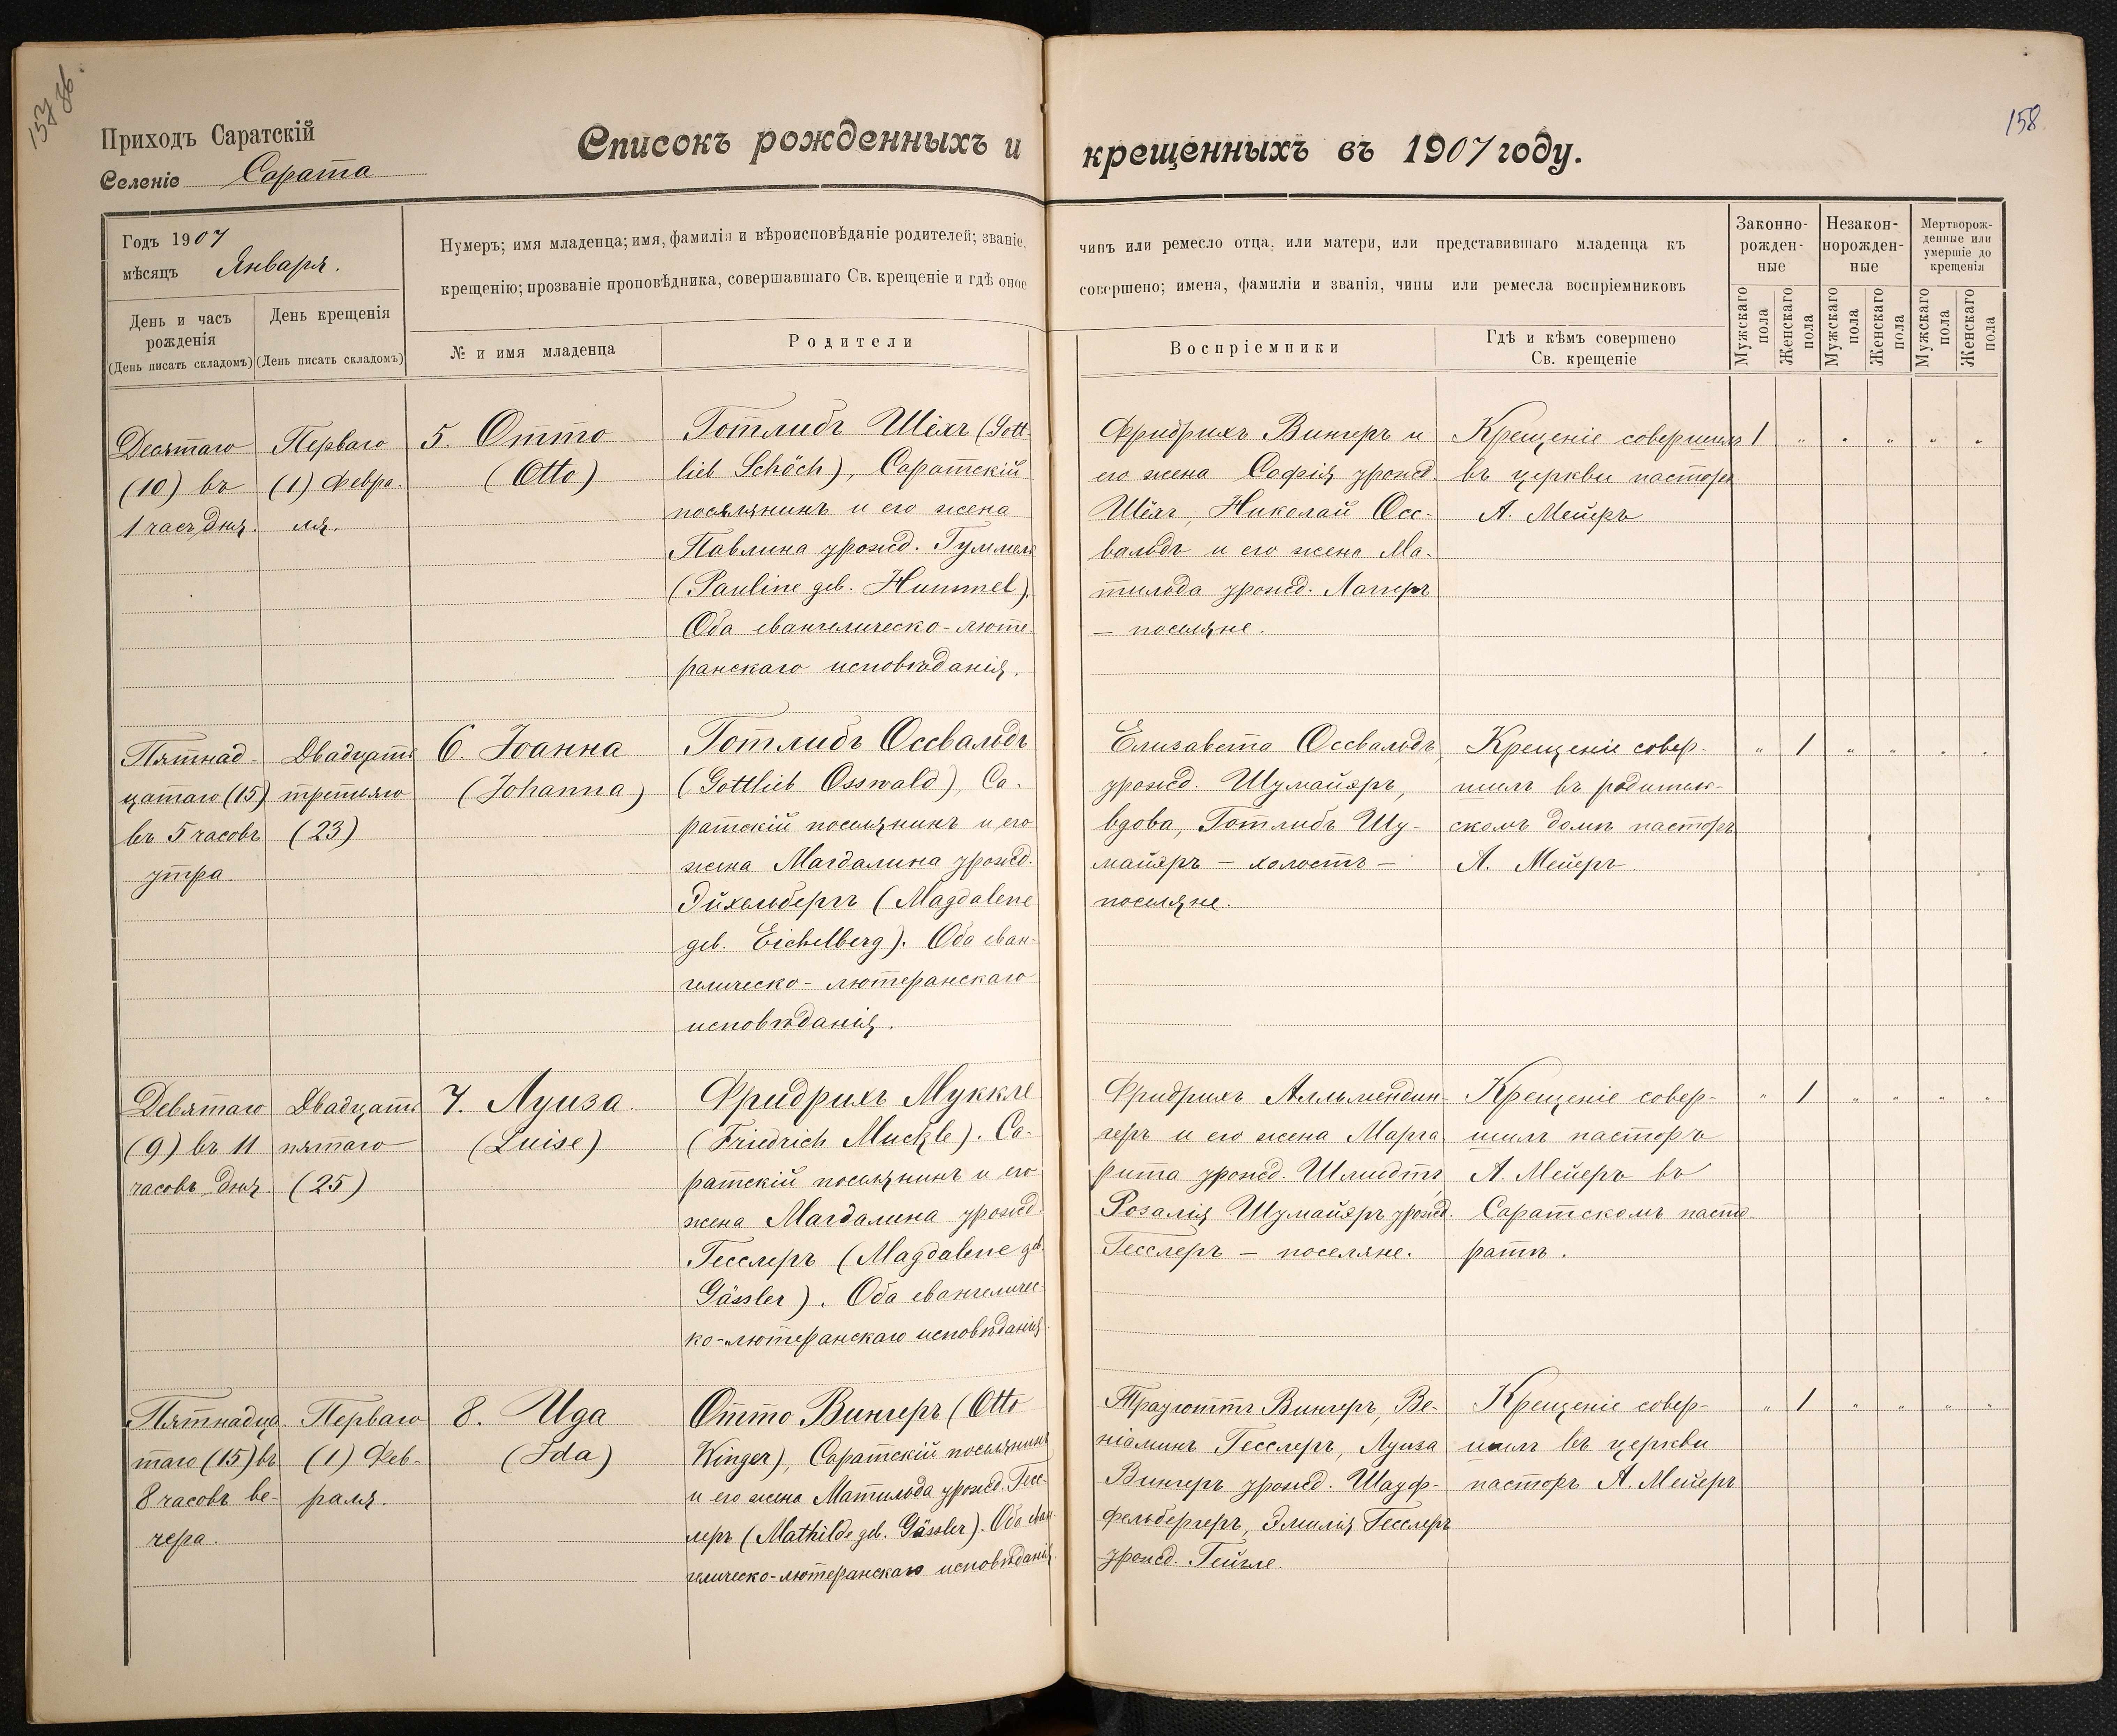 157 86
158
Приходъ Саратскій
Селеніе Сарата
Списокъ рожденныхъ и крещенныхъ въ 1907 году.
Годъ 1907
мѣсяцъ Января.
Нумеръ; имя младенца; имя, фамилія и вѣроисповѣданіе родителей; званіе, чинъ или ремесло отца, или матери, или представившаго младенца къ
крещенію; прозваніе проповѣдника, совершавшаго Св. крещеніе и гдѣ оное совершено; имена, фамиліи и званія, чины или ремесла воспріемниковъ
День и часъ
рожденія
(День писать складомъ)
День крещенія
(День писать складомъ)
№ и имя младенца
Родители
Воспріемники
Гдѣ и кѣмъ совершено
Св. крещеніе
Законно-
рожден-
ные
Незакон-
норожден-
ные
Мертворож-
денные или
умершіе до
крещенія
Мужскаго
пола
Женскаго
пола
Мужскаго
пола
Женскаго
пола
Мужскаго
пола
Женскаго
пола
Десятаго
(10) въ
1 часъ дня.
Перваго
(1) Февра-
ля.
5. Отто
(Otto)
Готлибъ Шёхъ (Gott-
lieb Schöch), Саратскій
поселянинъ и его жена
Павлина урожд. Гуммель
(Pauline geb. Hummel).
Оба евангелическо-люте-
ранскаго исповѣданія.
Фридрихъ Вингеръ и
его жена Софія урожд.
Шёхъ, Николай Осс-
вальдъ и его жена Ма-
тильда урожд. Лагеръ
— поселяне.
Крещеніе совершилъ
въ церкви пасторъ
А. Мейеръ
1 " " " " "
Пятнад-
цатаго (15)
въ 5 часовъ
утра.
Двадцать
третьяго
(23)
6. Іоанна
(Johanna)
Готлибъ Оссвальдъ
(Gottlieb Osswald), Са-
ратскій поселянинъ и его
жена Магдалина урожд.
Эйхельбергъ (Magdalene
geb. Eichelberg). Оба еван-
гелическо-лютеранскаго
исповѣданія.
Елизавета Оссвальдъ,
урожд. Шумайэръ,
вдова, Готлибъ Шу-
майэръ — холостъ —
поселяне.
Крещеніе совер-
шилъ въ родитель-
скомъ домѣ пасторъ
А. Мейеръ.
" 1 " " " "
Девятаго
(9) въ 11
часовъ дня.
Двадцать
пятаго
(25)
7. Луиза.
(Luise)
Фридрихъ Муккле
(Friedrich Muckle). Са-
ратскій поселянинъ и его
жена Магдалина урожд.
Гесслеръ (Magdalene geb.
Gässler). Оба евангеличес-
ко-лютеранскаго исповѣданія.
Фридрихъ Алльмендин-
геръ и его жена Марга-
рита урожд. Шмидтъ,
Розалія Шумайэръ урожд.
Гесслеръ — поселяне.
Крещеніе совер-
шилъ пасторъ
А. Мейеръ въ
Саратскомъ пасто-
ратѣ.
" 1 " " " "
Пятнадца-
таго (15) въ
8 часовъ ве-
чера.
Перваго
(1) Фев-
раля.
8. Ида
(Ida)
Отто Вингеръ (Otto
Winger), Саратскій поселянинъ
и его жена Матильда урожд. Гесс-
леръ (Mathilde geb. Gässler). Оба еван-
гелическо-лютеранскаго исповѣданія.
Трауготтъ Вингеръ, Ве-
ніаминъ Гесслеръ, Луиза
Вингеръ урожд. Шауф-
фельбергеръ, Эмилія Гесслеръ
урожд. Гейгле.
Крещеніе совер-
шилъ въ церкви
пасторъ А. Мейеръ
" 1 " " " "